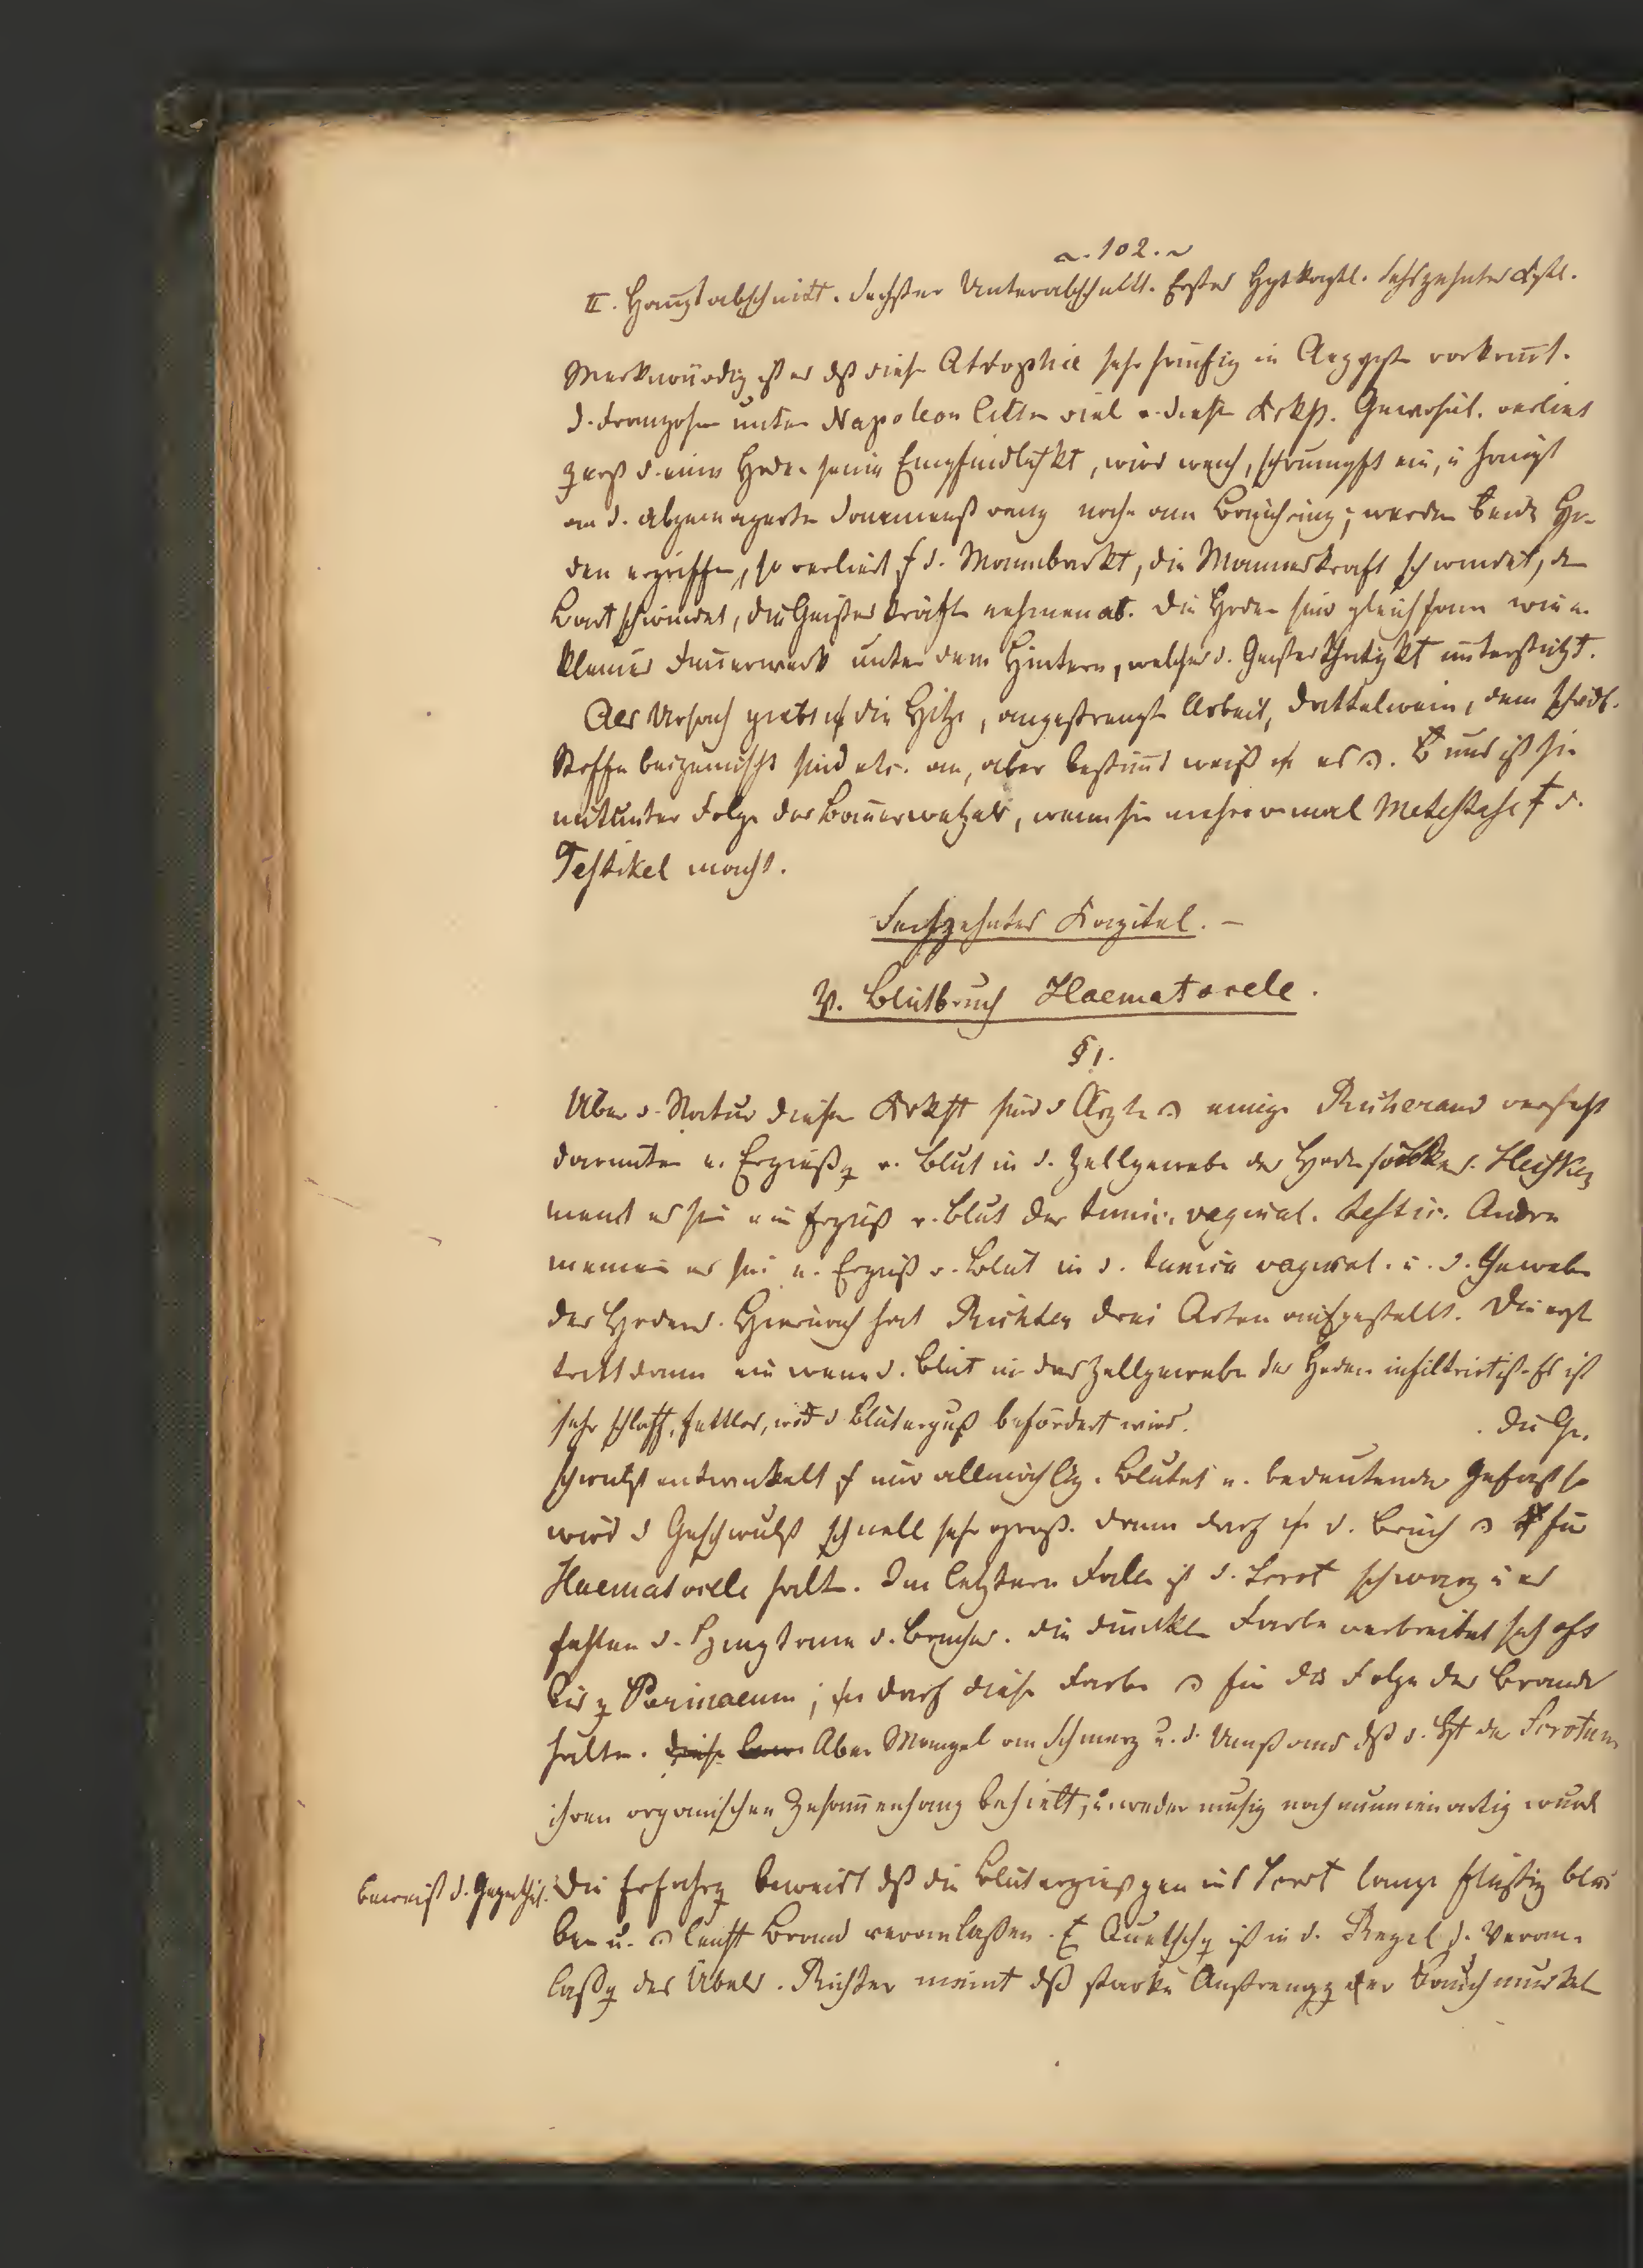 102.
II. Hauptabschnitt. Sechster Unterabschnitt. Erstes Hptkaptl. Sechszehntes Kptl.
Merkwürdig ist es dß diese Atrophie sehr häufig in Aegypten vorkommt.
d. Franzosen unter Napoleon litten viel a. dieser Krkh. Gewöhnl. verliert
zuerst d. eine Hoden seine Empfindlichkt, wird weich, schrumpft ein, u hängt
an d. abgemagerten Samenstrang nahe am Bauchring; werden beide Ho-
den ergriffen, so verliert d. Mannbarkt, die Manneskraft schwindet, der
Bart schwindet, die Geisteskräfte nehmen ab. Die Hoden sind gleichsam wie e.
kleines Feuerwerk unter dem Hintern, welches d. Geistesthätigkt unterstützt.
Als Ursach giebt die Hitze, angestrengte Arbeit, Dattelwein, dem schädl.
Stoffe beigemischt sind etc. an, aber bestimmt weiß es. uns ist sie
mitunter Folge des Bauerwetzels, wenn sie mehreremal Metastase d.
Testikel macht.
Sechszehntes Kapitel.
V. Blutbruch Haematocele.
§ 1.
Über d. Natur dieser Krkht sind d Ärzte einig. Richerand versteht
darunter e. Ergießg v. Blut in d. Zellgewebe des Hodensackes. Hecker
meint es sei ein Erguß v. Blut der tunic. vaginal. testic. Andere
meinen es sei e. Erguß v. Blut in d. tunica vaginal. u. d. Gewebe
des Hodens. Hiernach hat Richter drei Arten aufgestellt. Die erste
tritt dann ein wenn d. Blut in das Zellgewebe der Hoden infiltrirt ist. Es ist
sehr schlaff, fettlos, d Bluterguß befördert wird. Die Ge-
schwulst entwickelt nur allmählig. Blutet e. bedeutendes Gefäß so
wird d Geschwulst schnell sehr groß. Dann darf d. Bruch für
Haematocele halten. Im letztern Falle ist d. Scrot schwarz u es
fehlen d. Symptome d. Bruches. Die dunkle Farbe verbreitet sich oft
bis z Perinaeum; darf diese Farbe für die Folge des Brandes
halten. Aber Mangel an Schmerz u. d. Umstand dß d. Ht des Scrotum
ihren organischen Zusammenhang behielt, u. weder musig noch mumienartig wurde
beweist d. Gegentheil. Die Erfahrg beweist dß die Blutergießgen ins Scrot lange flüßig blei
ben u. leicht Brand veranlaßen. Quetschg ist in d. Regel d. Veran-
laßg des Übels. Richter meint dß starke Anstrengg der Bauchmuskel